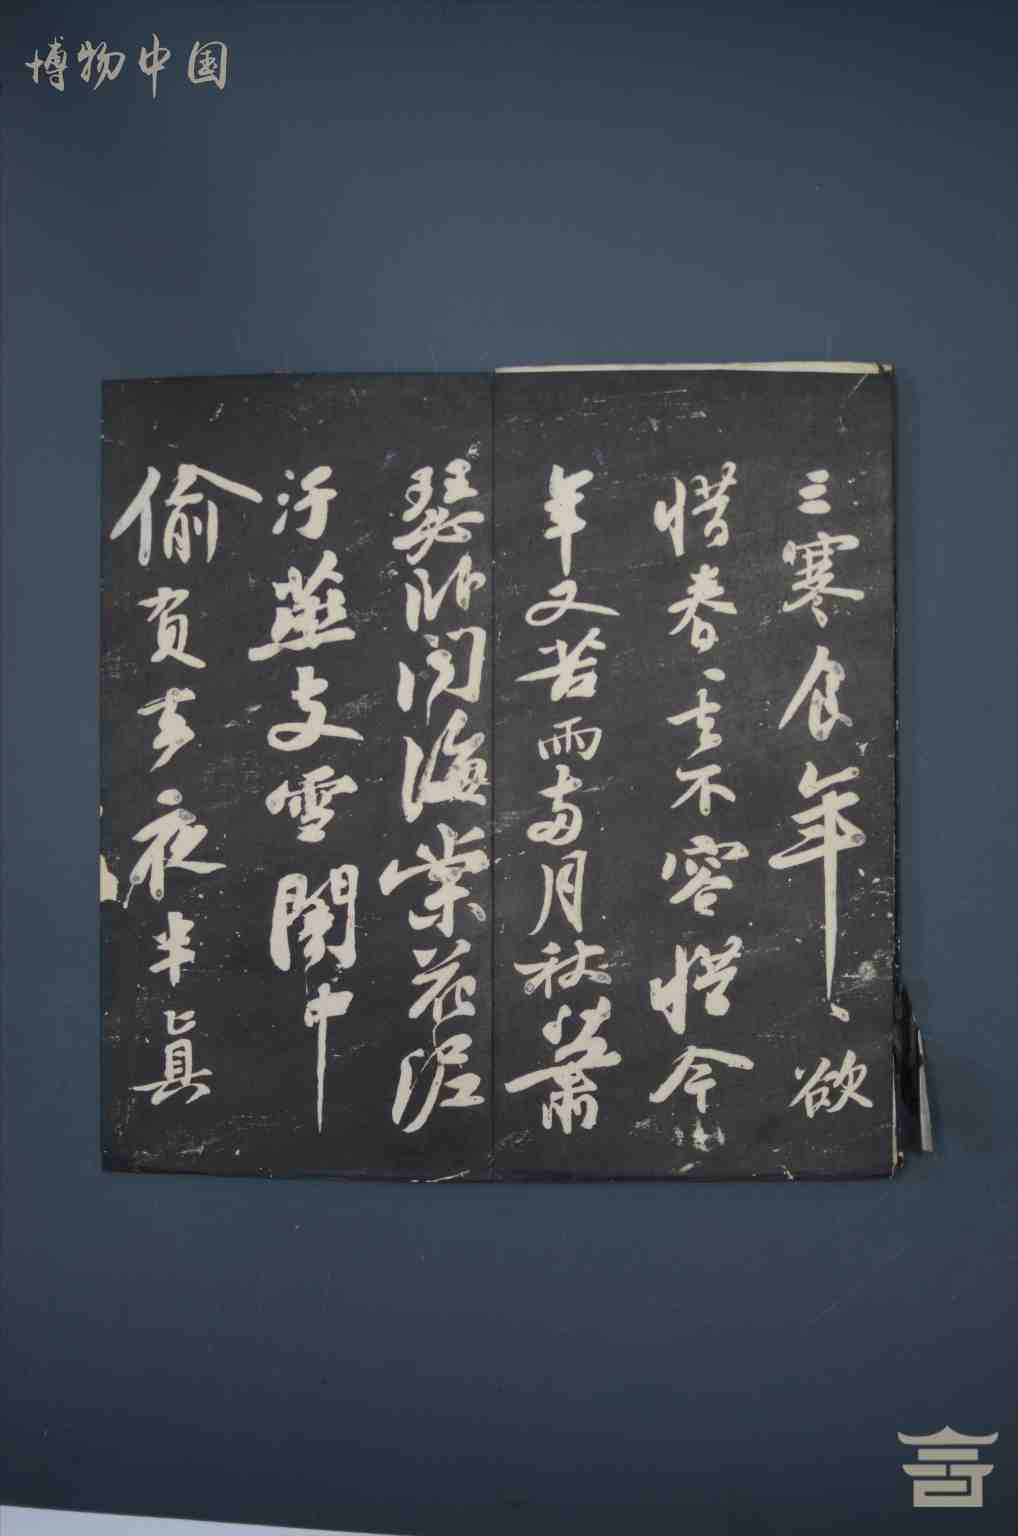 博物中国
三寒食年〻欲
惜春〻去不容惜今
年又苦雨兩月秋蕭
瑟卧聞海棠花泥
汙燕支雪闇中
偷負去夜半真